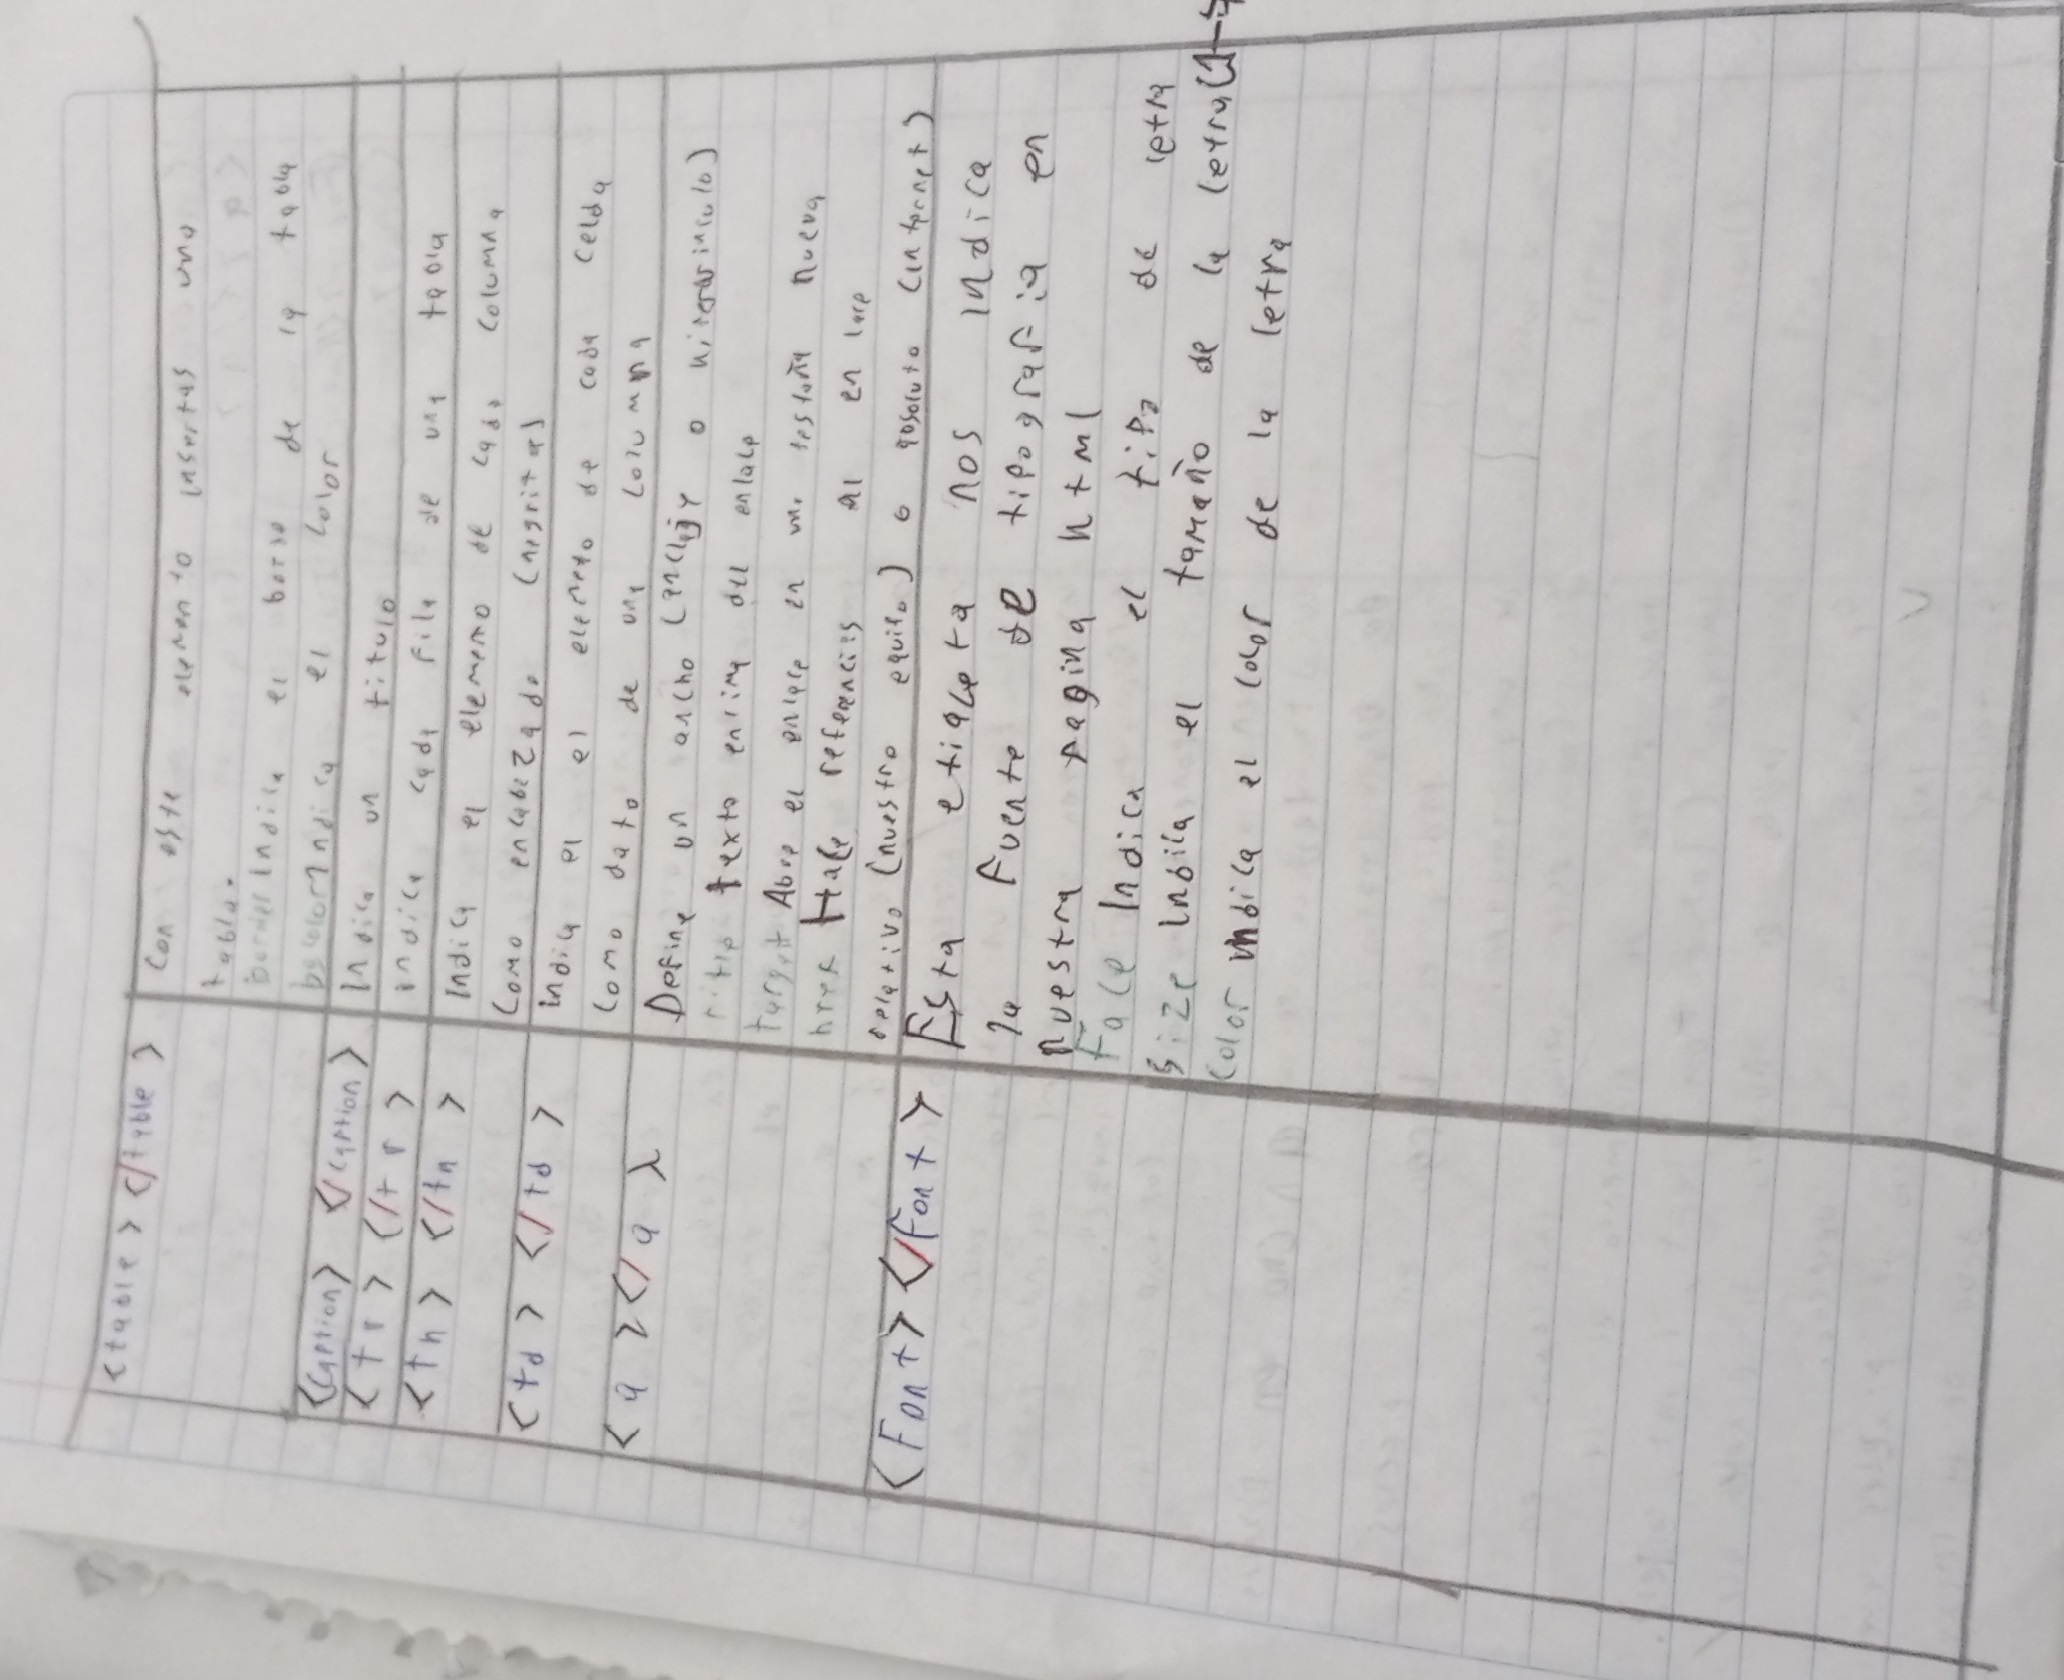 <table> </table> Con este elemento insertas una
tabla.
border Indica el borde de la tabla
bgcolor Indica el color
<caption> </caption> Indica un titulo
<tr> </tr> indica cada fila de una tabla
<th> </th> Indica el elemeno de cada columna
Como encabezado (negritas)
<td> </td> indica el el elemeto de cada celda
Como dato de una columna
<a></a> Define un ancho ( o hipervinculo)
title texto encima del enlace
target Abre el enlace en una nueva
href Hace referencias al enlace
relativo (nuestro equipo) o absoluto (internet)
<Font> </Font> Esta etiqueta nos indica
la Fuente de tipografia en
nuestra pagina html
Face Indica el tipo de letra
Size Indica el tamaño de la letra (1-
Color indica el color de la letra